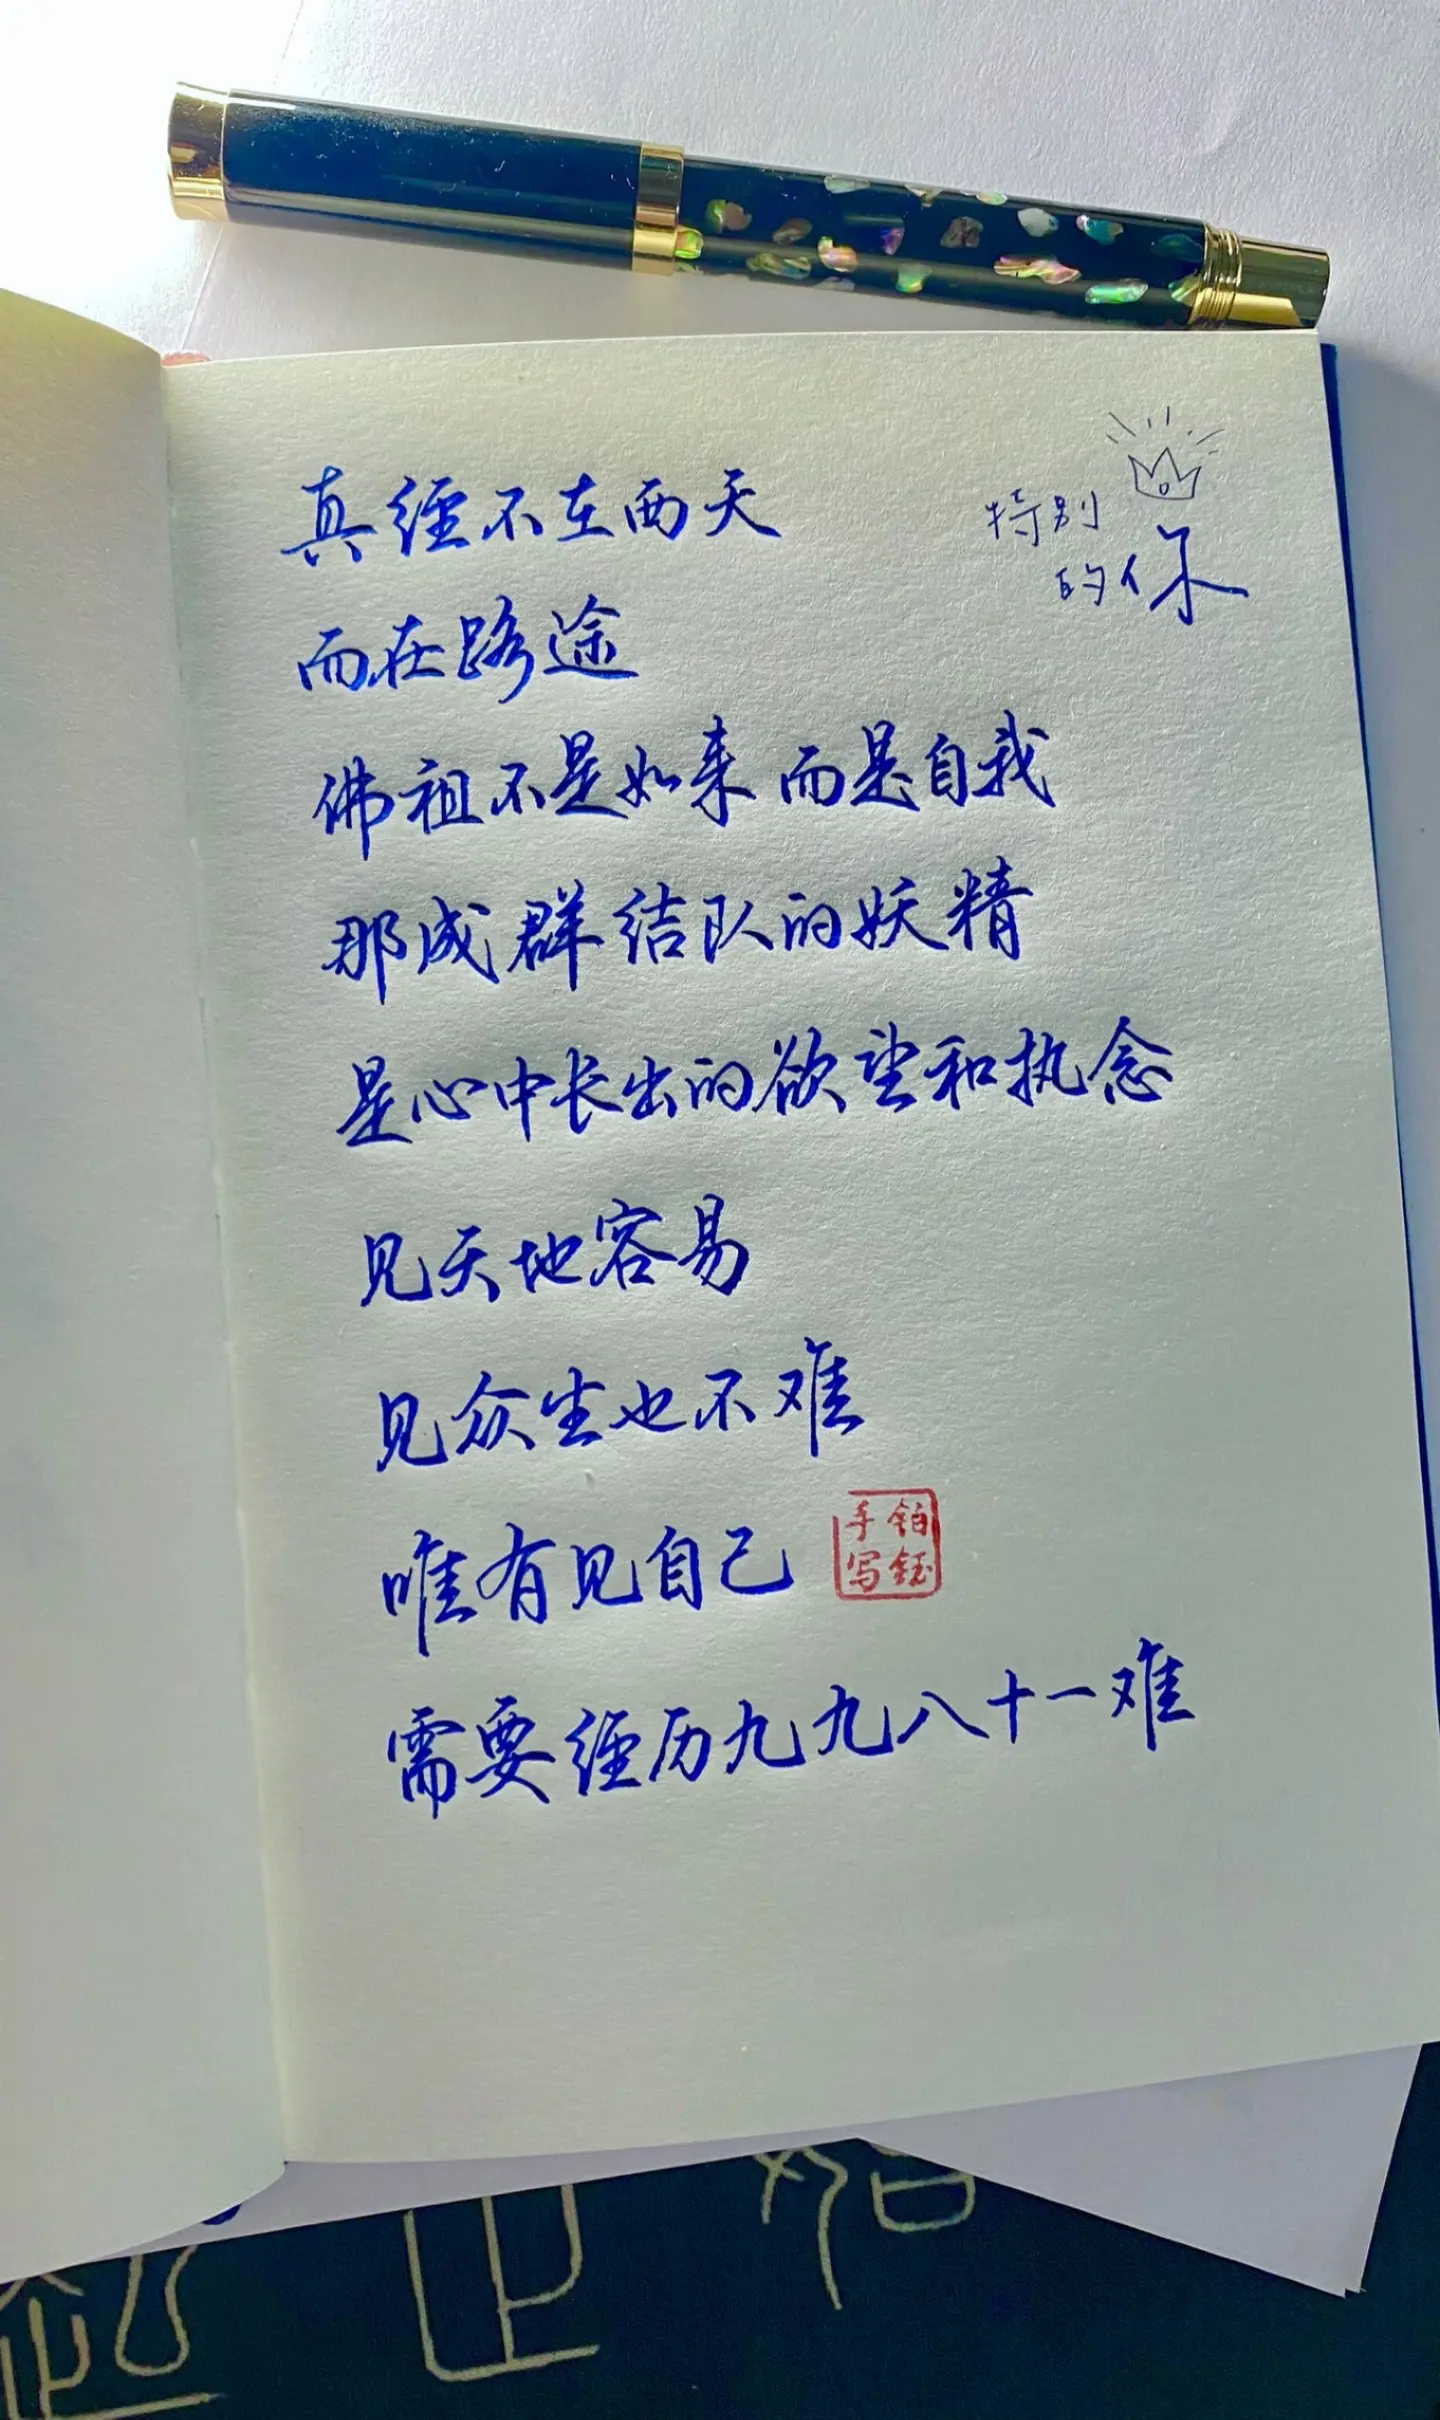 真经不在西天
特别
的你
而在路途
佛祖不是如来 而是自我
那成群结队的妖精
是心中长出的欲望和执念
见天地容易
见众生也不难
唯有见自己
铂钰
手写
需要经历九九八十一难